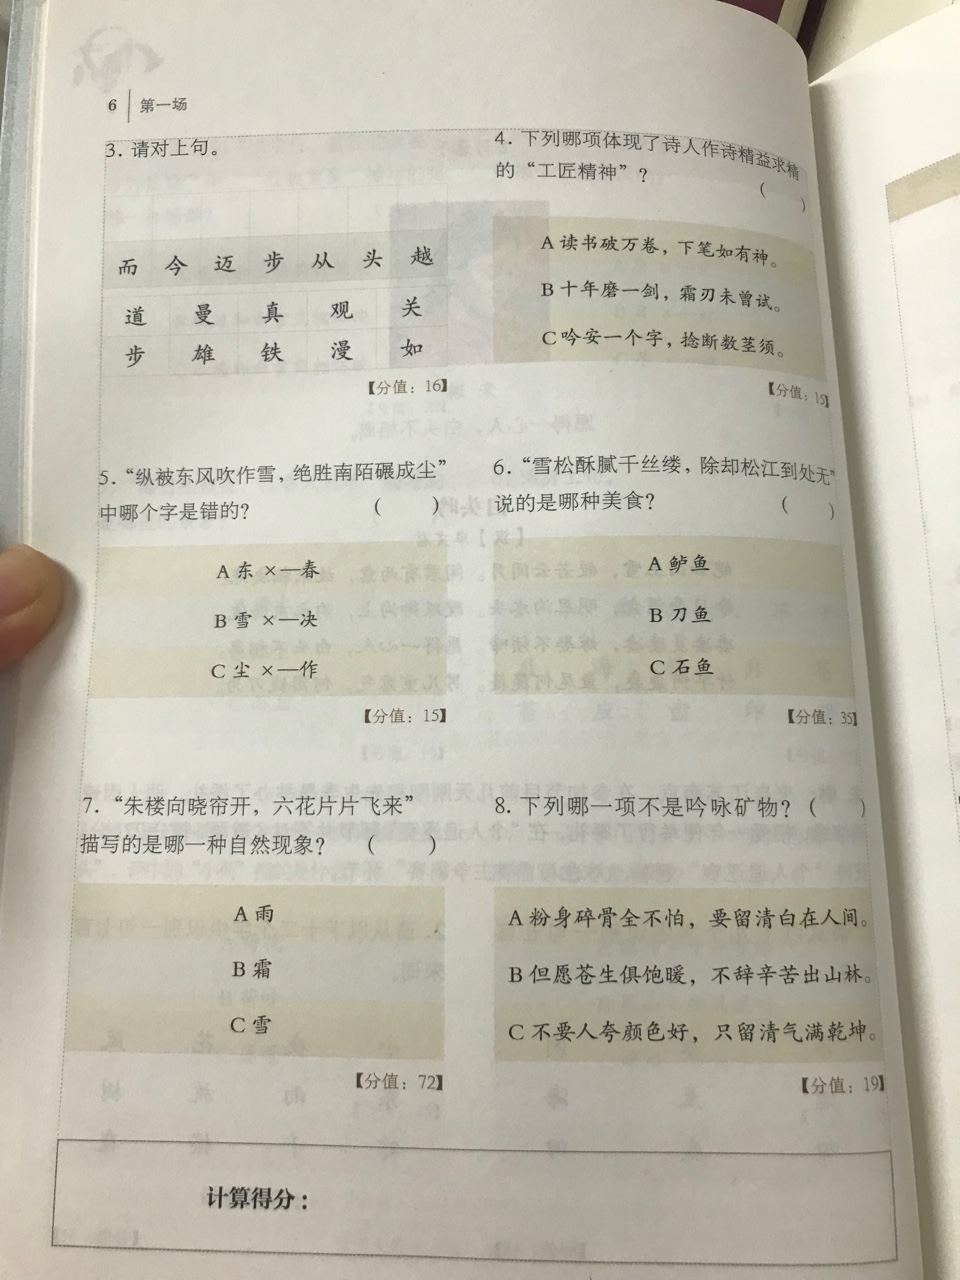 6 第一场
3. 请对上句。
而 今 迈 步 从 头 越
道 曼 真 观 关
步 雄 铁 漫 如
【分值：16】
4. 下列哪项体现了诗人作诗精益求精
的“工匠精神”？ （ ）
A 读书破万卷，下笔如有神。
B 十年磨一剑，霜刃未曾试。
C 吟安一个字，捻断数茎须。
【分值：15】
5. “纵被东风吹作雪，绝胜南陌碾成尘”
中哪个字是错的？ （ ）
A 东 ×—春
B 雪 ×—决
C 尘 ×—作
【分值：15】
6. “雪松酥腻千丝缕，除却松江到处无”
说的是哪种美食？ （ ）
A 鲈鱼
B 刀鱼
C 石鱼
【分值：35】
7. “朱楼向晓帘开，六花片片飞来”
描写的是哪一种自然现象？ （ ）
A 雨
B 霜
C 雪
【分值：72】
8. 下列哪一项不是吟咏矿物？（ ）
A 粉身碎骨全不怕，要留清白在人间。
B 但愿苍生俱饱暖，不辞辛苦出山林。
C 不要人夸颜色好，只留清气满乾坤。
【分值：19】
计算得分：